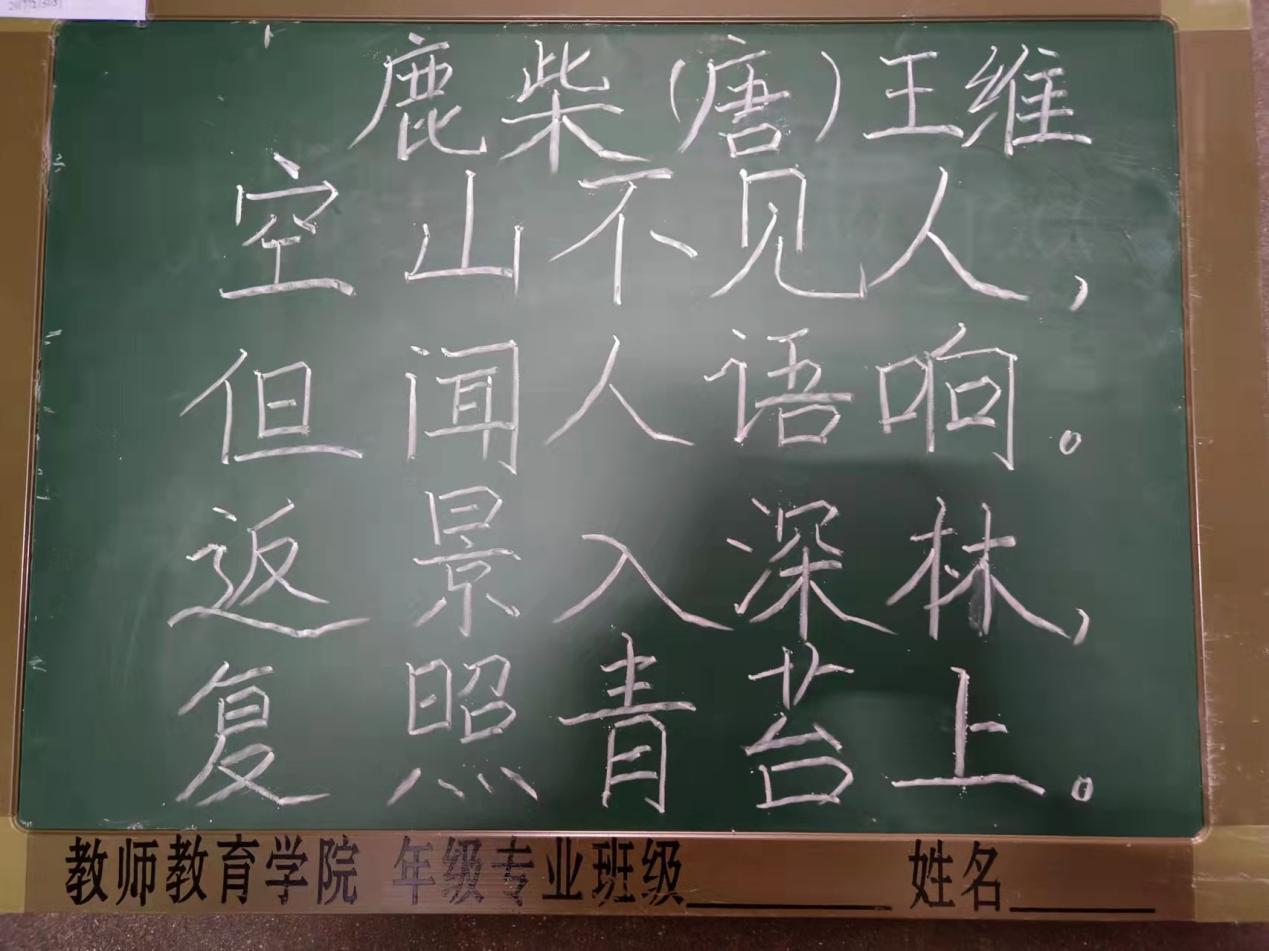 鹿柴(唐)王维
空山不见人,
但闻人语响。
返景入深林,
复照青苔上。
教师教育学院 年级专业班级________ 姓名______